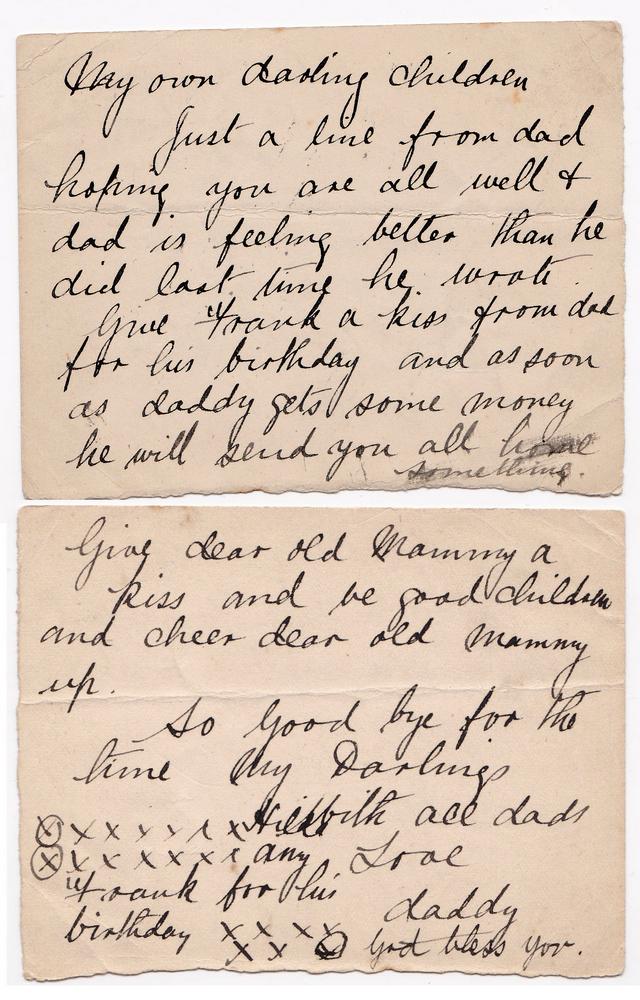 My own darling children
Just a line from dad
hoping you are all well &
dad is feeling better than he
did last time he wrote.
Give Frank a kiss from dad
for his birthday and as soon
as daddy gets some money
he will send you all home
something.
Give dear old Mammy a
kiss and be good children
and cheer dear old Mammy
up.
So Good bye for the
time My Darlings
X X X X X X X Hilda with all dads
X X X X X X X any Love
Frank for his daddy
birthday X X X X
X X X God bless you.